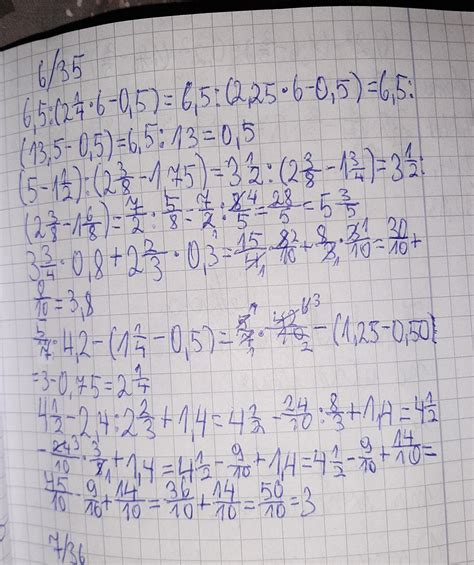 6/35
6,5:(2 1/4·6-0,5)=6,5:(2,25·6-0,5)=6,5:
(13,5-0,5)=6,5:13=0,5
(5-1 1/2):(2 3/8-1,75)=3 1/2:(2 3/8-1 3/4)=3 1/2:
(2 3/8-1 6/8)=7/2:5/8=7/2·8 4/5=28/5=5 3/5
3 3/4·0,8+2 2/3·0,3=15/4 1·8 2/10+8/3 1·3 1/10=30/10+
8/10=3,8
5/7·4,2-(1 1/4-0,5)=5 1/7 1·42 6 3/10 2-(1,25-0,50)
=3-0,75=2 1/4
4 1/2-2,4:2 2/3+1,4=4 1/2-24/10:8/3+1,4=4 1/2
-24 3/10·3/8 1+1,4=4 1/2-9/10+1,4=4 1/2-9/10+14/10=
45/10-9/10+14/10=36/10+14/10=50/10=3
7/36